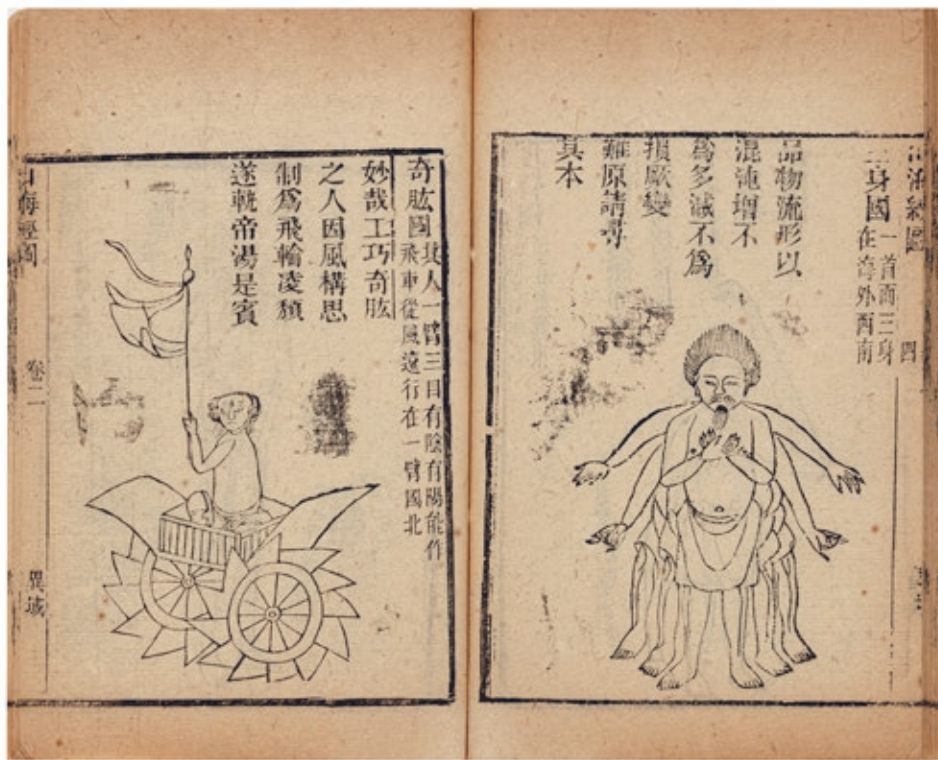 山海經圖
四
三身國
一首而三身
在海外西南
品物流形以
混沌增不
爲多減不爲
損厥變
難原請尋
其本
奇肱國
其人一臂三目有陰有陽能作
飛車從風遠行在一臂國北
妙哉工巧奇肱
之人因風構思
制爲飛輪凌頹
遂軌帝湯是賓
山海經圖
卷二
異域